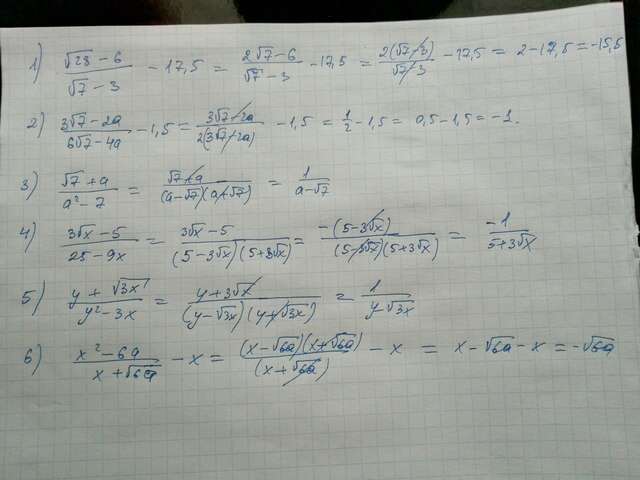 1) (√28 - 6)/(√7 - 3) - 17,5 = (2√7 - 6)/(√7 - 3) - 17,5 = (2(√7 - 3))/(√7 - 3) - 17,5 = 2 - 17,5 = -15,5
2) (3√7 - 2a)/(6√7 - 4a) - 1,5 = (3√7 - 2a)/(2(3√7 - 2a)) - 1,5 = 1/2 - 1,5 = 0,5 - 1,5 = -1.
3) (√7 + a)/(a² - 7) = (√7 + a)/((a - √7)(a + √7)) = 1/(a - √7)
4) (3√x - 5)/(25 - 9x) = (3√x - 5)/((5 - 3√x)(5 + 3√x)) = (-(5 - 3√x))/((5 - 3√x)(5 + 3√x)) = -1/(5 + 3√x)
5) (y + √3x)/(y² - 3x) = (y + 3√x)/((y - √3x)(y + √3x)) = 1/(y - √3x)
6) (x² - 6a)/(x + √6a) - x = ((x - √6a)(x + √6a))/((x + √6a)) - x = x - √6a - x = -√6a